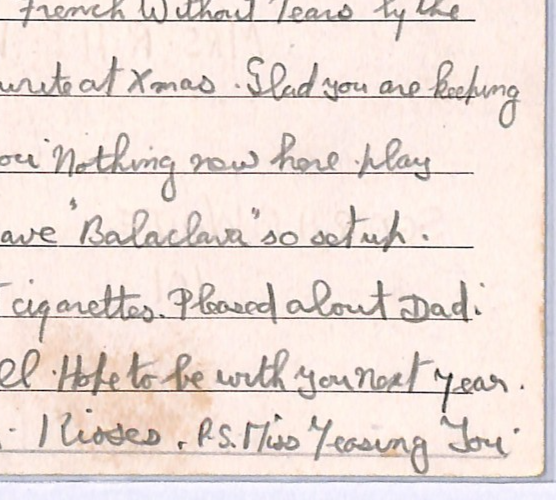 French Without Tears by the
write at Xmas. Glad you are keeping
Nothing new here play
ave "Balaclava" so set up.
cigarettes. Pleased about Dad.
Hope to be with you next year.
Kisses. P.S. Miss Teasing You